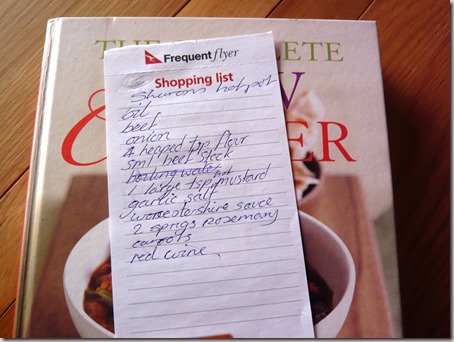 THE ETE
Frequent flyer
Shopping list
Sharons hotpot
oil
beef
onion
4 heaped tsp flour
5ml beef stock
boiling water
1 large tsp mustard
garlic salt
worestershire sauce
2 sprigs rosemary
carrots
red wine.
ER